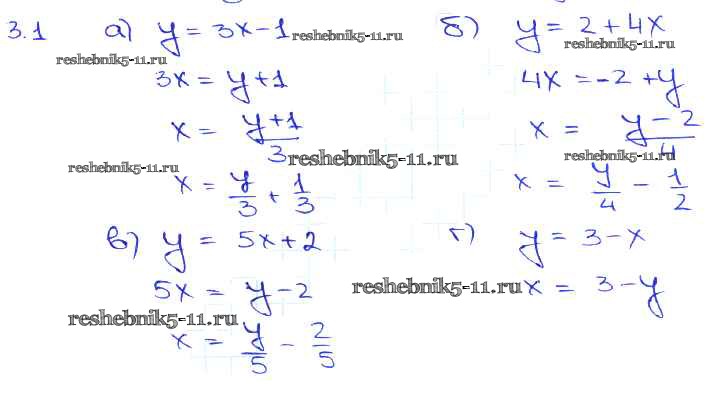 3.1 а) y = 3x - 1 reshebnik5-11.ru
reshebnik5-11.ru
3x = y + 1
x = (y + 1)/3
reshebnik5-11.ru
reshebnik5-11.ru
x = y/3 + 1/3
б) y = 2 + 4x
reshebnik5-11.ru
4x = -2 + y
x = (y - 2)/4
reshebnik5-11.ru
x = y/4 - 1/2
в) y = 5x + 2
5x = y - 2
reshebnik5-11.ru
x = y/5 - 2/5
г) y = 3 - x
reshebnik5-11.ru x = 3 - y